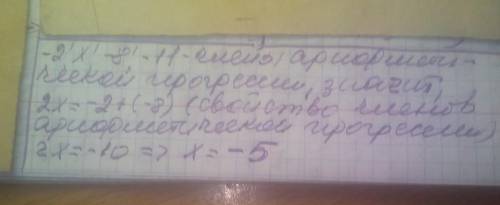 -2; x; -8; -11 - члены арифмети-
ческой прогрессии, значит,
2x = -2 + (-8) (свойство членов
арифметической прогрессии)
2x = -10 => x = -5